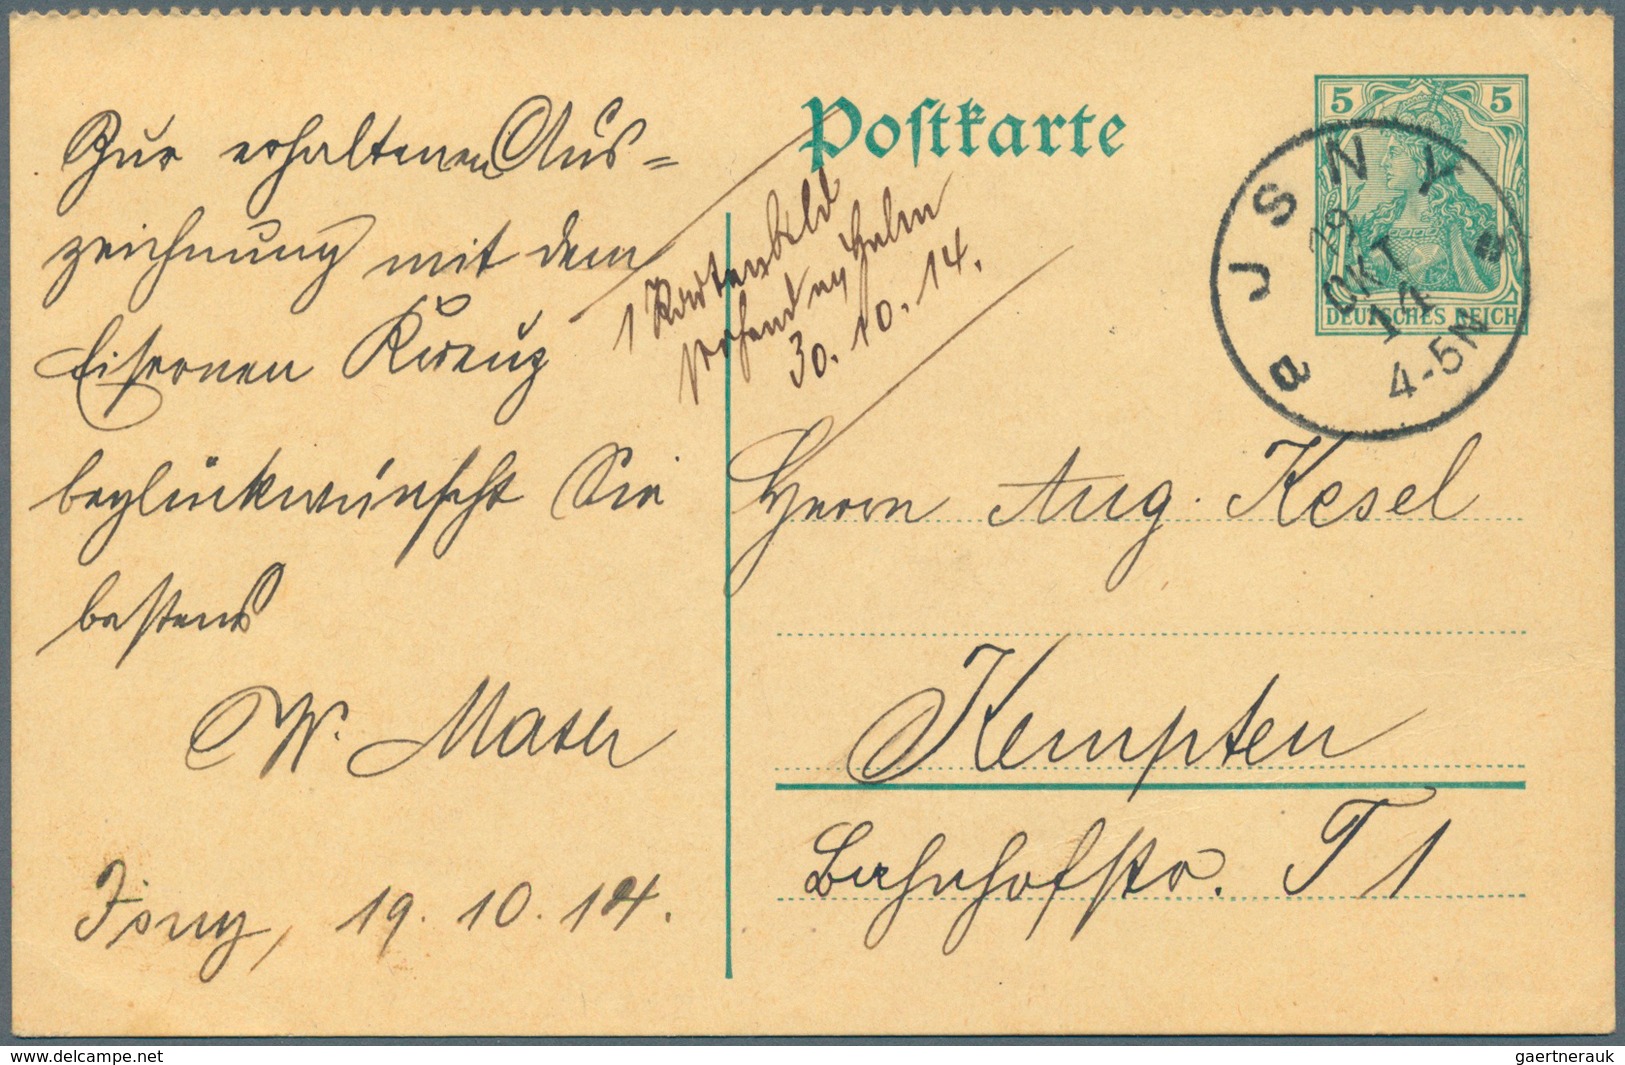 Postkarte
5 5
DEUTSCHES REICH
JSNY
19
OKT
14
4-5N
a
Zur erhaltenen Aus=
zeichnung mit dem
Eisernen Kreuz
beglückwünscht Sie
bestens
W.
Isny, 19.10.14.
1 Kartenbild
30.10.14.
Herrn Aug. Kesel
Kempten
Bahnhofstr. T 1
www.delcampe.net
gaertnerauk